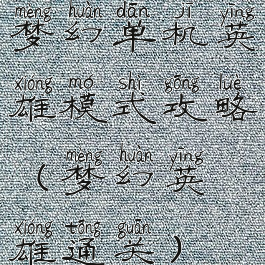 mèng huàn dān jī yīng
梦幻单机英
xióng mó shì gōng lüè
雄模式攻略
mèng huàn yīng
（梦幻英
xióng tōng guān
雄通关）